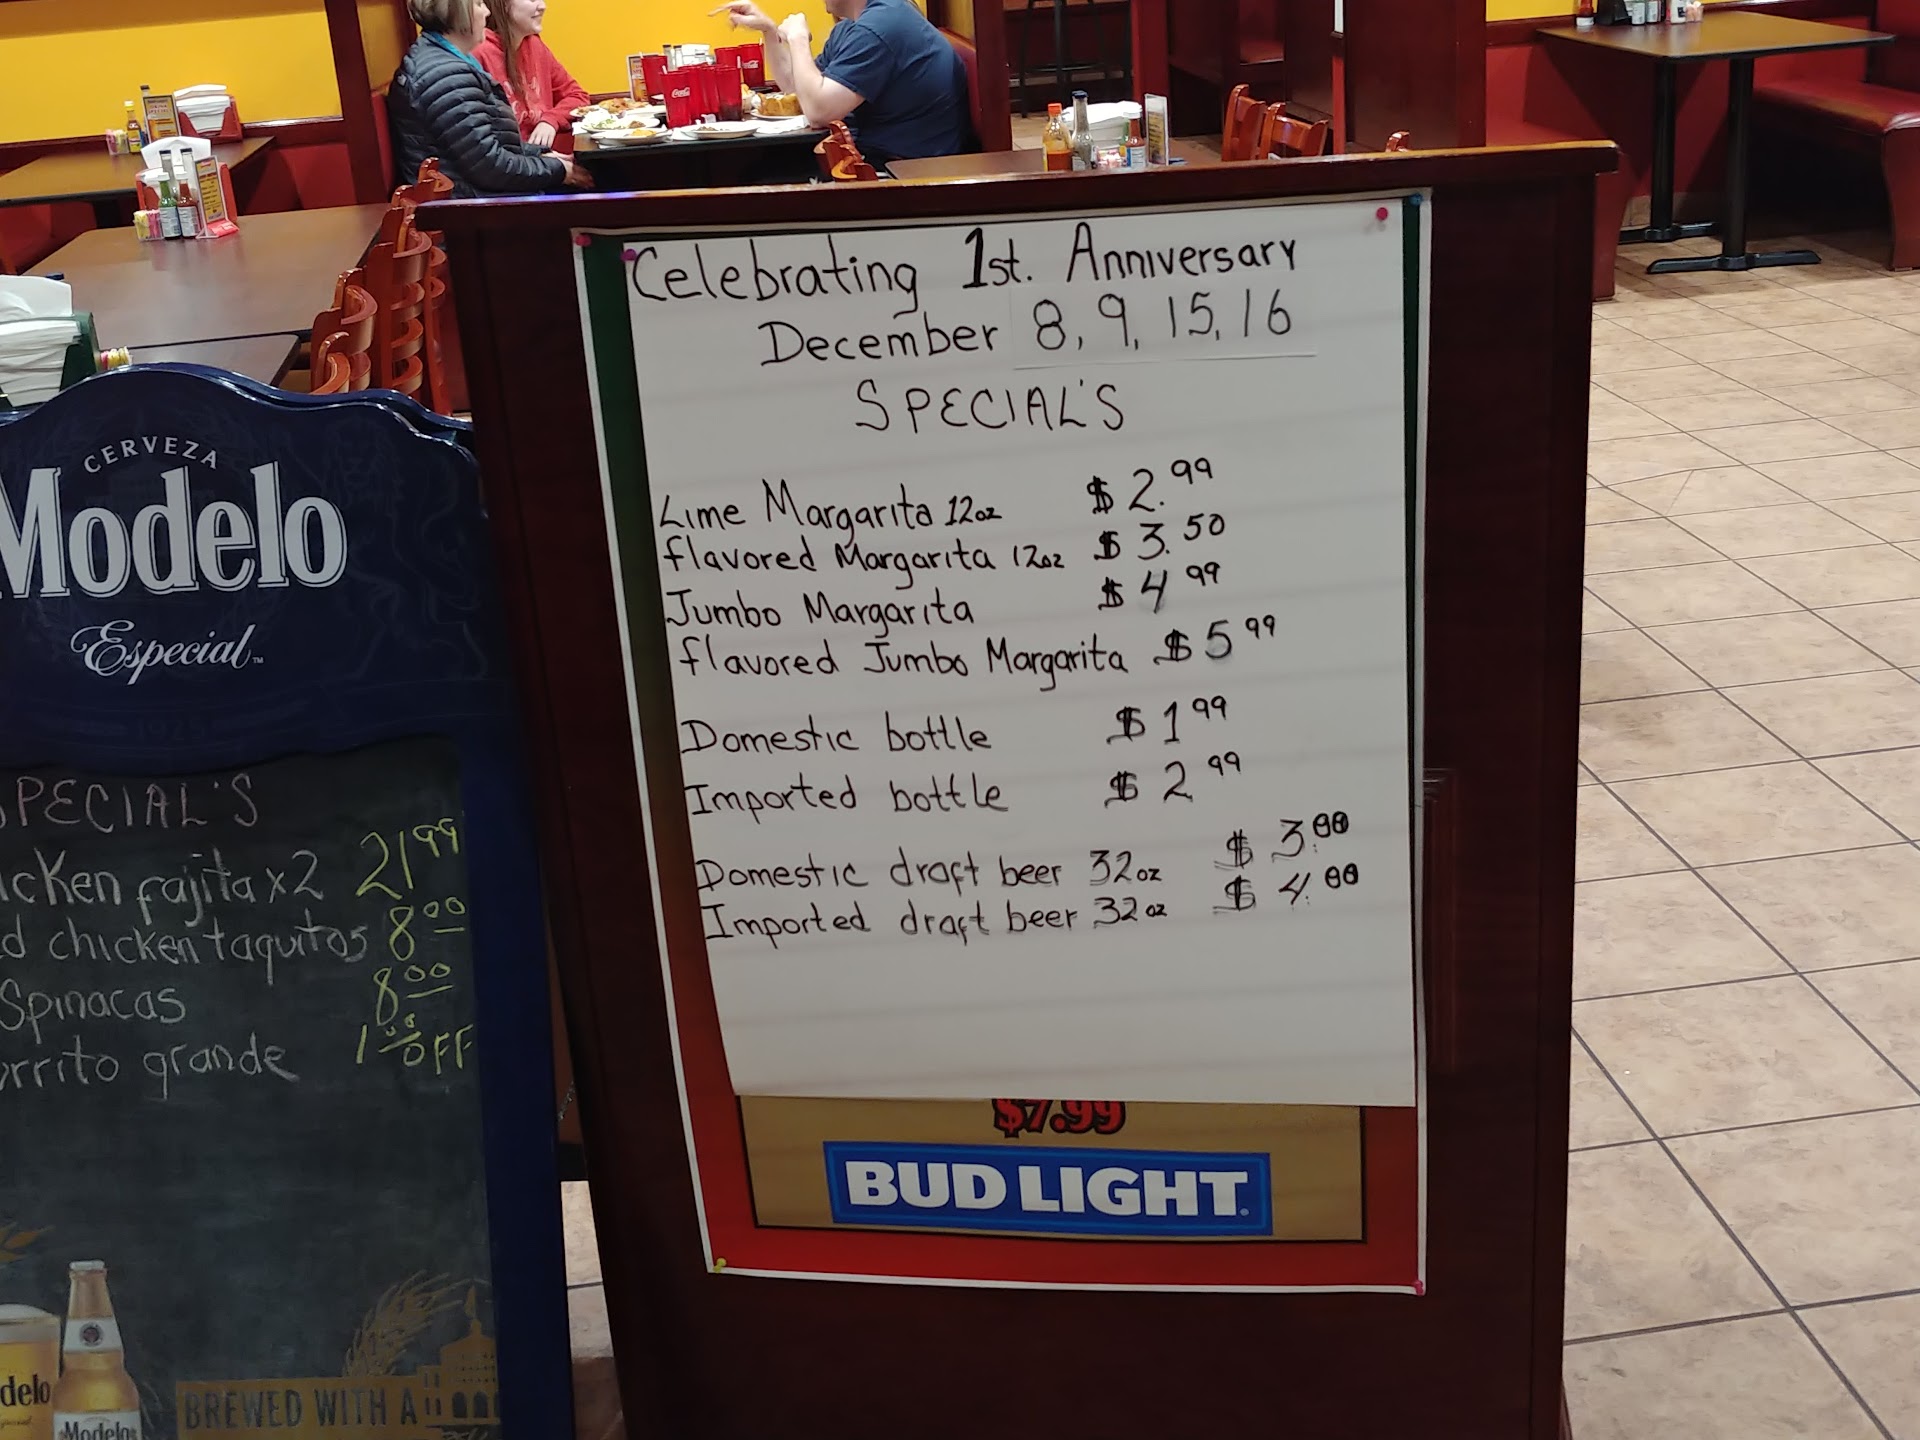 Celebrating 1st. Anniversary
December 8, 9, 15, 16
SPECIAL'S
Lime Margarita 12oz $2.99
flavored Margarita 12oz $3.50
Jumbo Margarita $4 99
flavored Jumbo Margarita $5 99
Domestic bottle $1 99
Imported bottle $2 99
Domestic draft beer 32oz $3.00
Imported draft beer 32oz $4.00
$7.99
BUD LIGHT
CERVEZA
Modelo
Especial
1925
SPECIAL'S
icken fajita x2 21 99
d chicken taquitos 8 00
Spinacas 8 00
rrito grande 1 00 OFF
delo
Modelo
BREWED WITH A
Coca-Cola